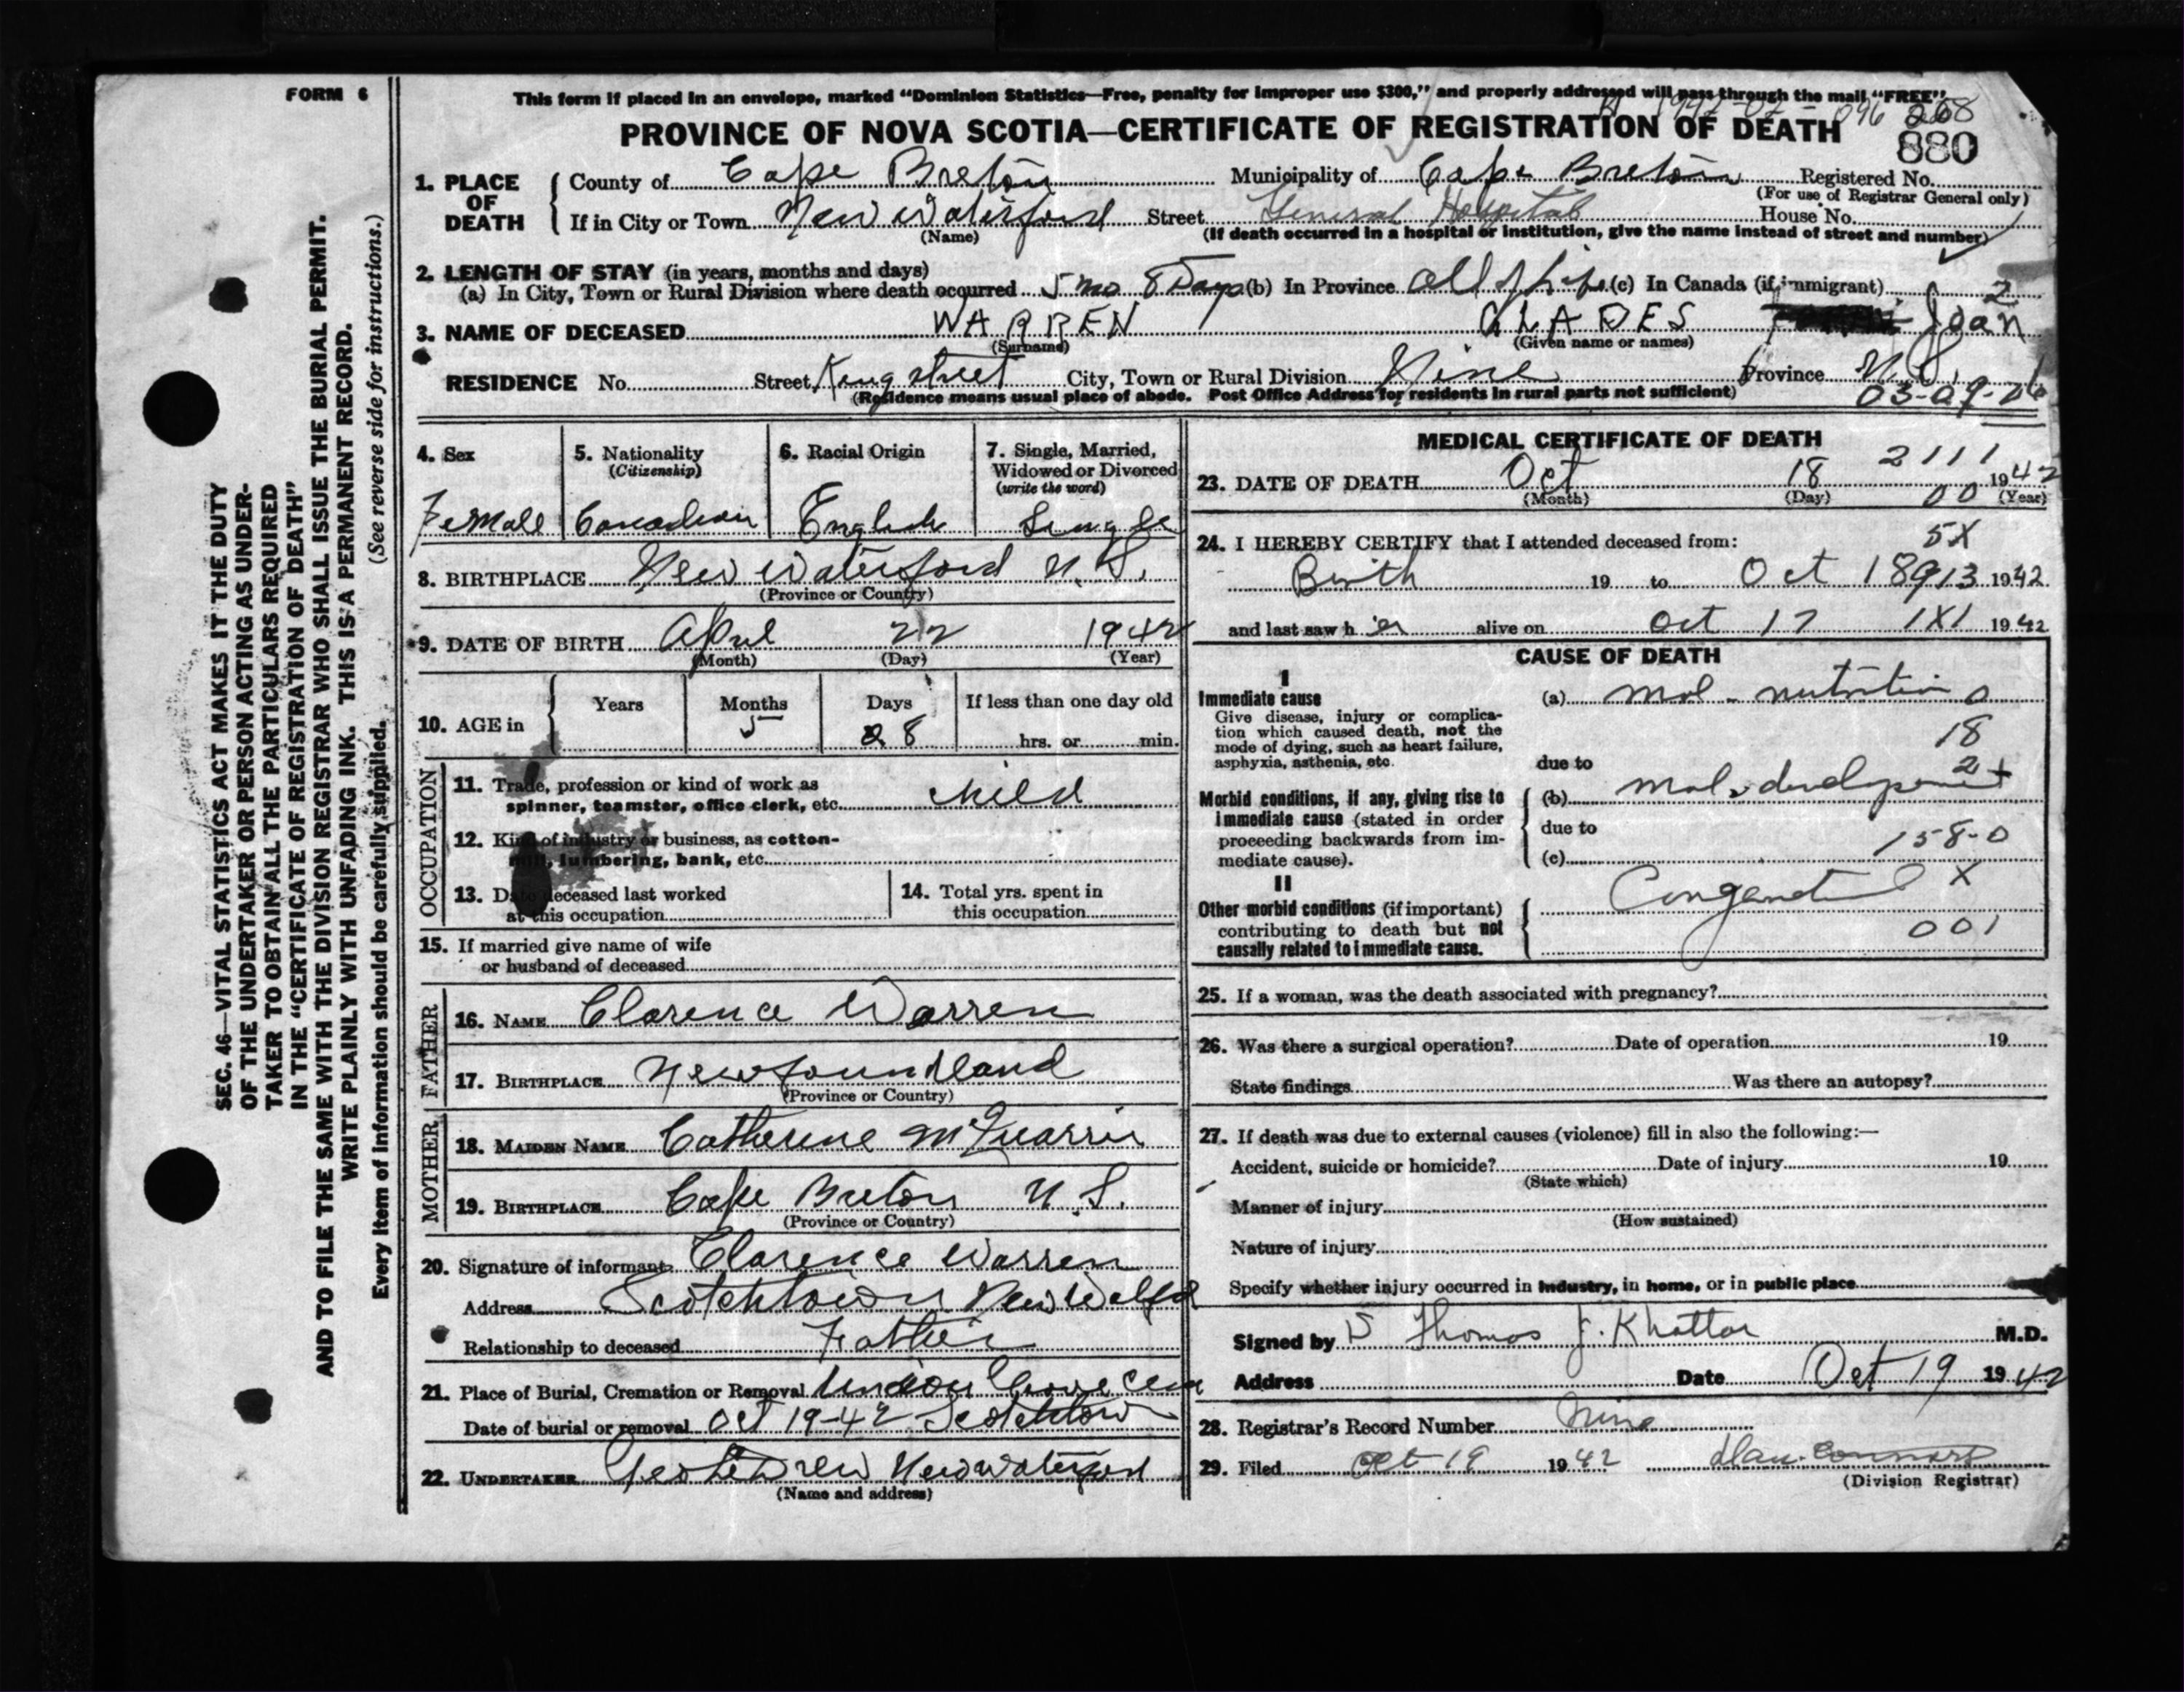 FORM 6
This form if placed in an envelope, marked "Dominion Statistics—Free, penalty for improper use $300," and properly addressed will pass through the mail "FREE"
PROVINCE OF NOVA SCOTIA—CERTIFICATE OF REGISTRATION OF DEATH
268
880
1. PLACE OF DEATH
County of Cape Breton Municipality of Cape Breton Registered No.
(For use of Registrar General only)
If in City or Town New Waterford Street General Hospital House No.
(Name) (If death occurred in a hospital or institution, give the name instead of street and number)
2. LENGTH OF STAY (in years, months and days)
(a) In City, Town or Rural Division where death occurred 5 mo 8 Days (b) In Province All of life (c) In Canada (if immigrant)
2
3. NAME OF DECEASED WARREN GLADES Joan
(Surname) (Given name or names)
RESIDENCE No. Street King street City, Town or Rural Division Nine Province N.S.
(Residence means usual place of abode. Post Office Address for residents in rural parts not sufficient)
03-09-
4. Sex
Female
5. Nationality
(Citizenship)
Canadian
6. Racial Origin
English
7. Single, Married, Widowed or Divorced
(write the word)
Single
8. BIRTHPLACE New Waterford N.S.
(Province or Country)
9. DATE OF BIRTH April 22 1942
(Month) (Day) (Year)
10. AGE in
Years Months Days If less than one day old
5 28 hrs. or min.
OCCUPATION
11. Trade, profession or kind of work as
spinner, teamster, office clerk, etc. child
12. Kind of industry or business, as cotton-
mill, lumbering, bank, etc.
13. Date deceased last worked
at this occupation
14. Total yrs. spent in
this occupation
15. If married give name of wife
or husband of deceased
FATHER
16. NAME Clarence Warren
17. BIRTHPLACE Newfoundland
(Province or Country)
MOTHER
18. MAIDEN NAME Catherine McQuarrie
19. BIRTHPLACE Cape Breton N.S.
(Province or Country)
20. Signature of informant Clarence Warren
Address Scotchtown New
Relationship to deceased Father
21. Place of Burial, Cremation or Removal Union Grove Cem
Date of burial or removal Oct 19-42 Scotchtown
22. UNDERTAKER New Waterford
(Name and address)
MEDICAL CERTIFICATE OF DEATH
2111
23. DATE OF DEATH Oct 18 1942
(Month) (Day) 00 (Year)
24. I HEREBY CERTIFY that I attended deceased from:
5X
Birth 19 to Oct 18 913 1942
and last saw h er alive on Oct 17 1X1 1942
CAUSE OF DEATH
I
Immediate cause
Give disease, injury or complica-
tion which caused death, not the
mode of dying, such as heart failure,
asphyxia, asthenia, etc.
(a) mal-nutrition 0
18
due to
2+
Morbid conditions, if any, giving rise to
immediate cause (stated in order
proceeding backwards from im-
mediate cause).
(b) mal-development
due to
(c) 158-0
II
Other morbid conditions (if important)
contributing to death but not
causally related to immediate cause.
Congenital X
001
25. If a woman, was the death associated with pregnancy?
26. Was there a surgical operation? Date of operation 19
State findings Was there an autopsy?
27. If death was due to external causes (violence) fill in also the following:—
Accident, suicide or homicide? Date of injury 19
(State which)
Manner of injury
(How sustained)
Nature of injury
Specify whether injury occurred in industry, in home, or in public place
Signed by Thomas J. Khattar M.D.
Address Date Oct 19 1942
28. Registrar's Record Number Nine
29. Filed Oct 19 1942
(Division Registrar)
SEC. 46—VITAL STATISTICS ACT MAKES IT THE DUTY
OF THE UNDERTAKER OR PERSON ACTING AS UNDER-
TAKER TO OBTAIN ALL THE PARTICULARS REQUIRED
IN THE "CERTIFICATE OF REGISTRATION OF DEATH"
AND TO FILE THE SAME WITH THE DIVISION REGISTRAR WHO SHALL ISSUE THE BURIAL PERMIT.
WRITE PLAINLY WITH UNFADING INK. THIS IS A PERMANENT RECORD.
Every item of information should be carefully supplied. (See reverse side for instructions.)